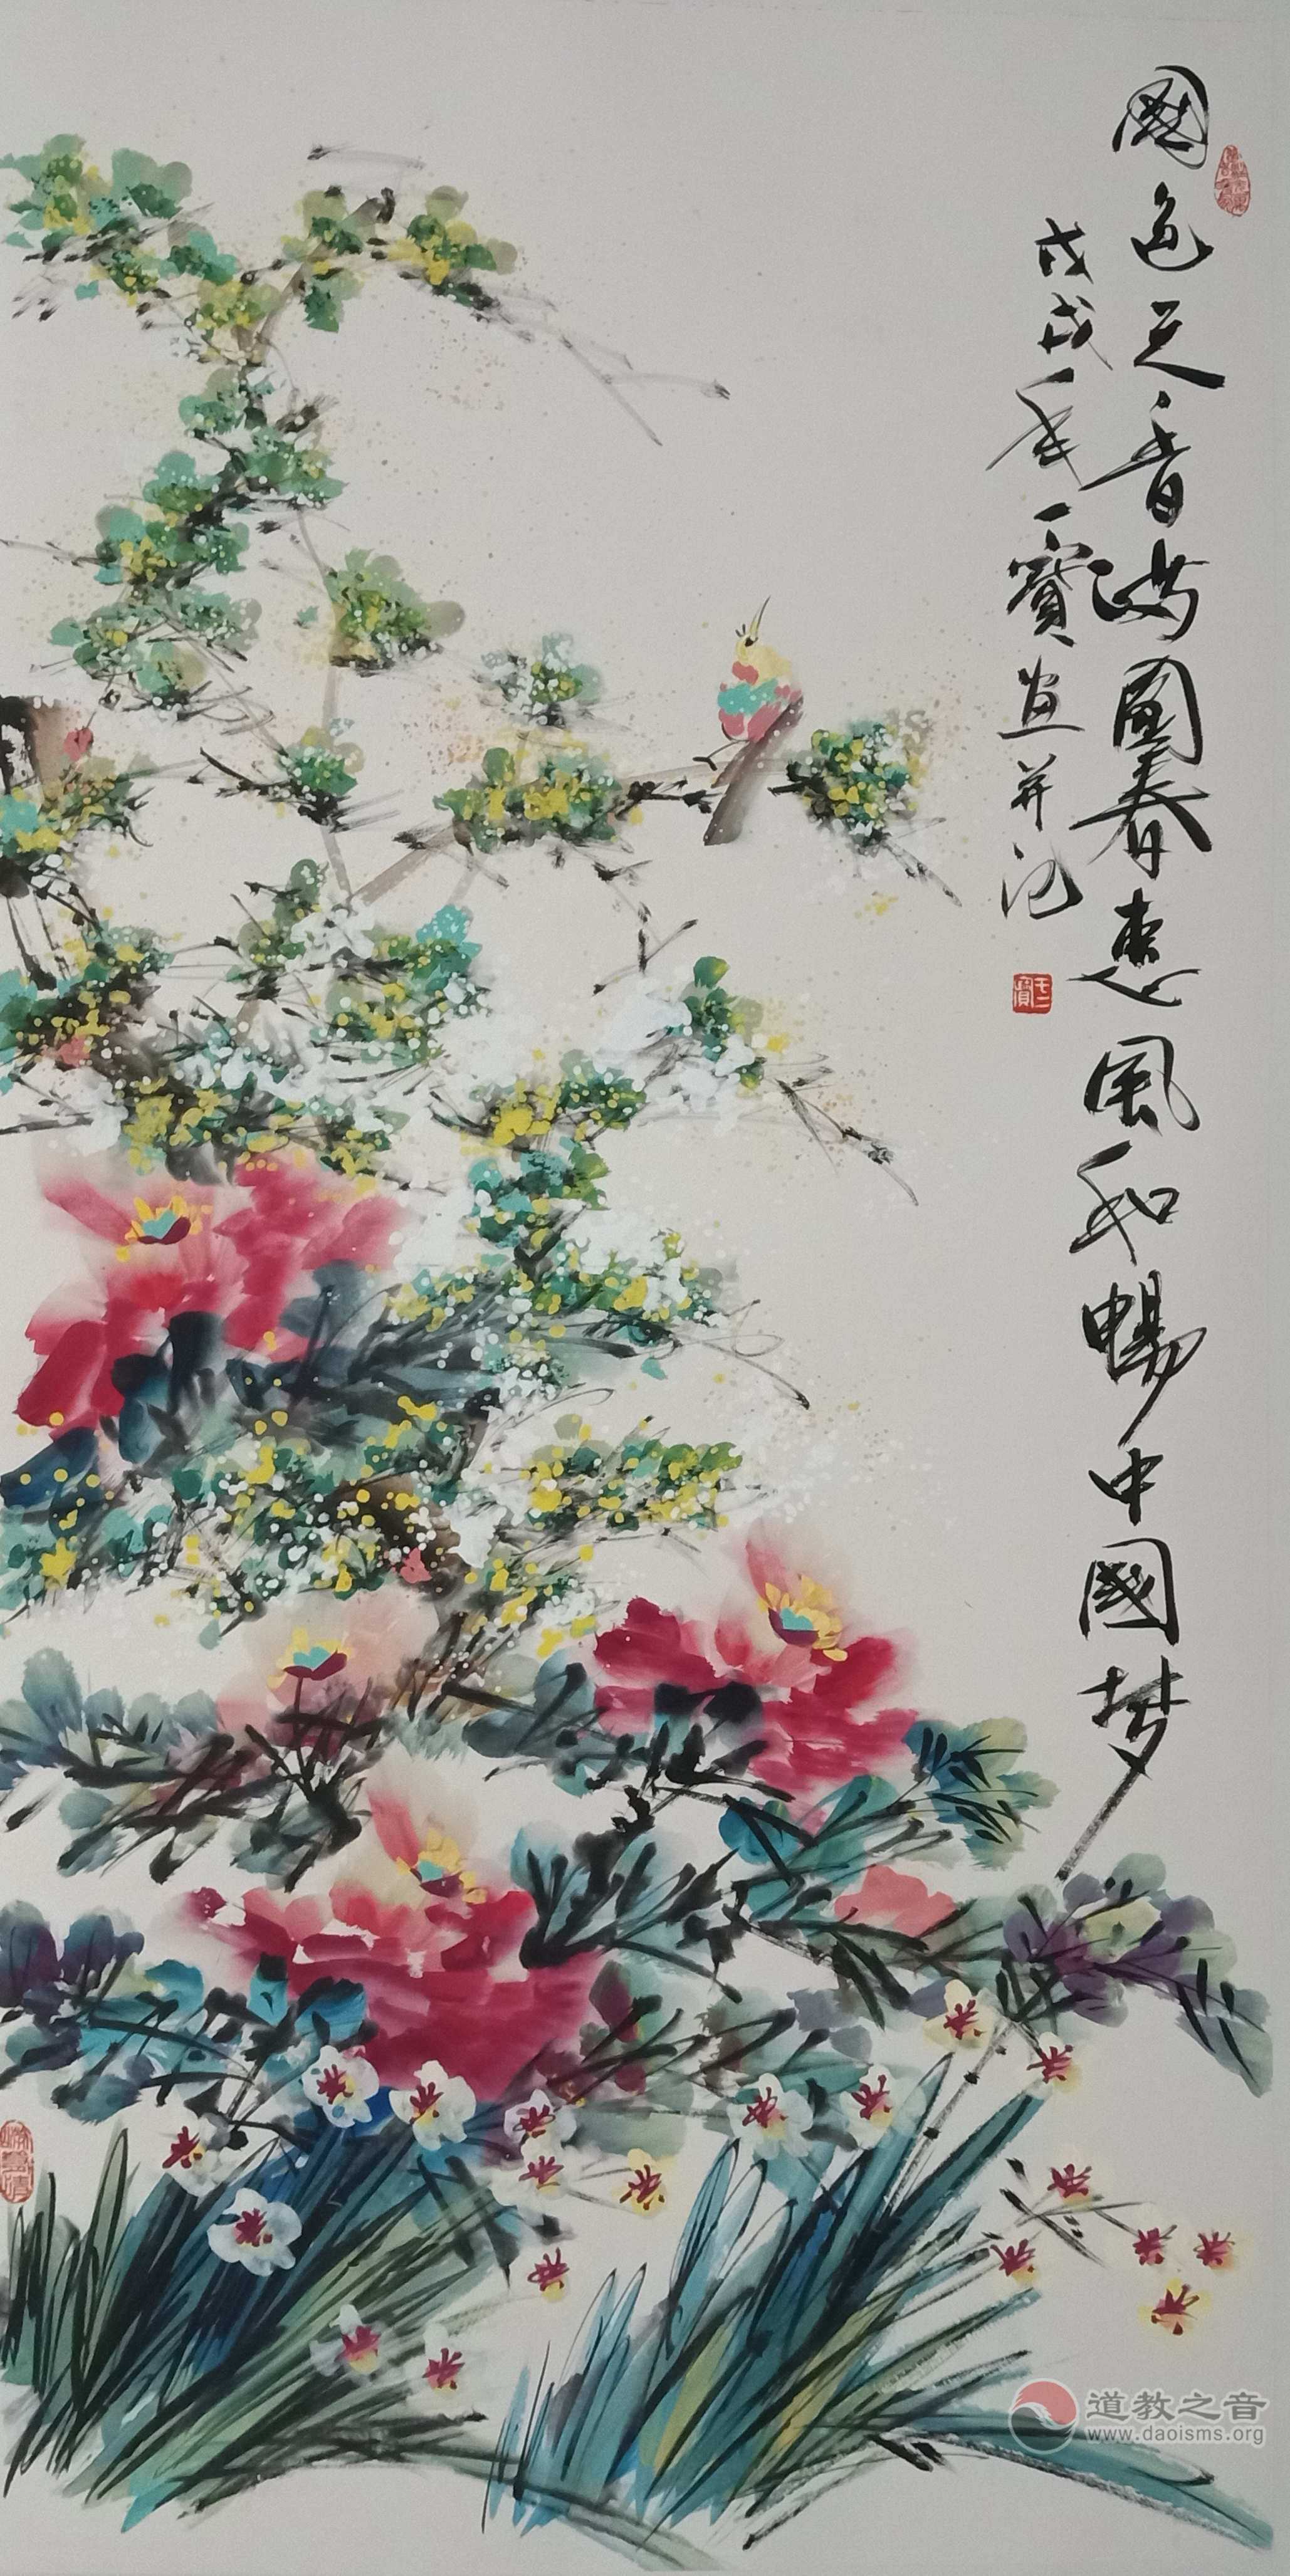 國色天香滿園春惠風和暢中國梦
戊戌年一寶画并记
道教之音
www.daoisms.org